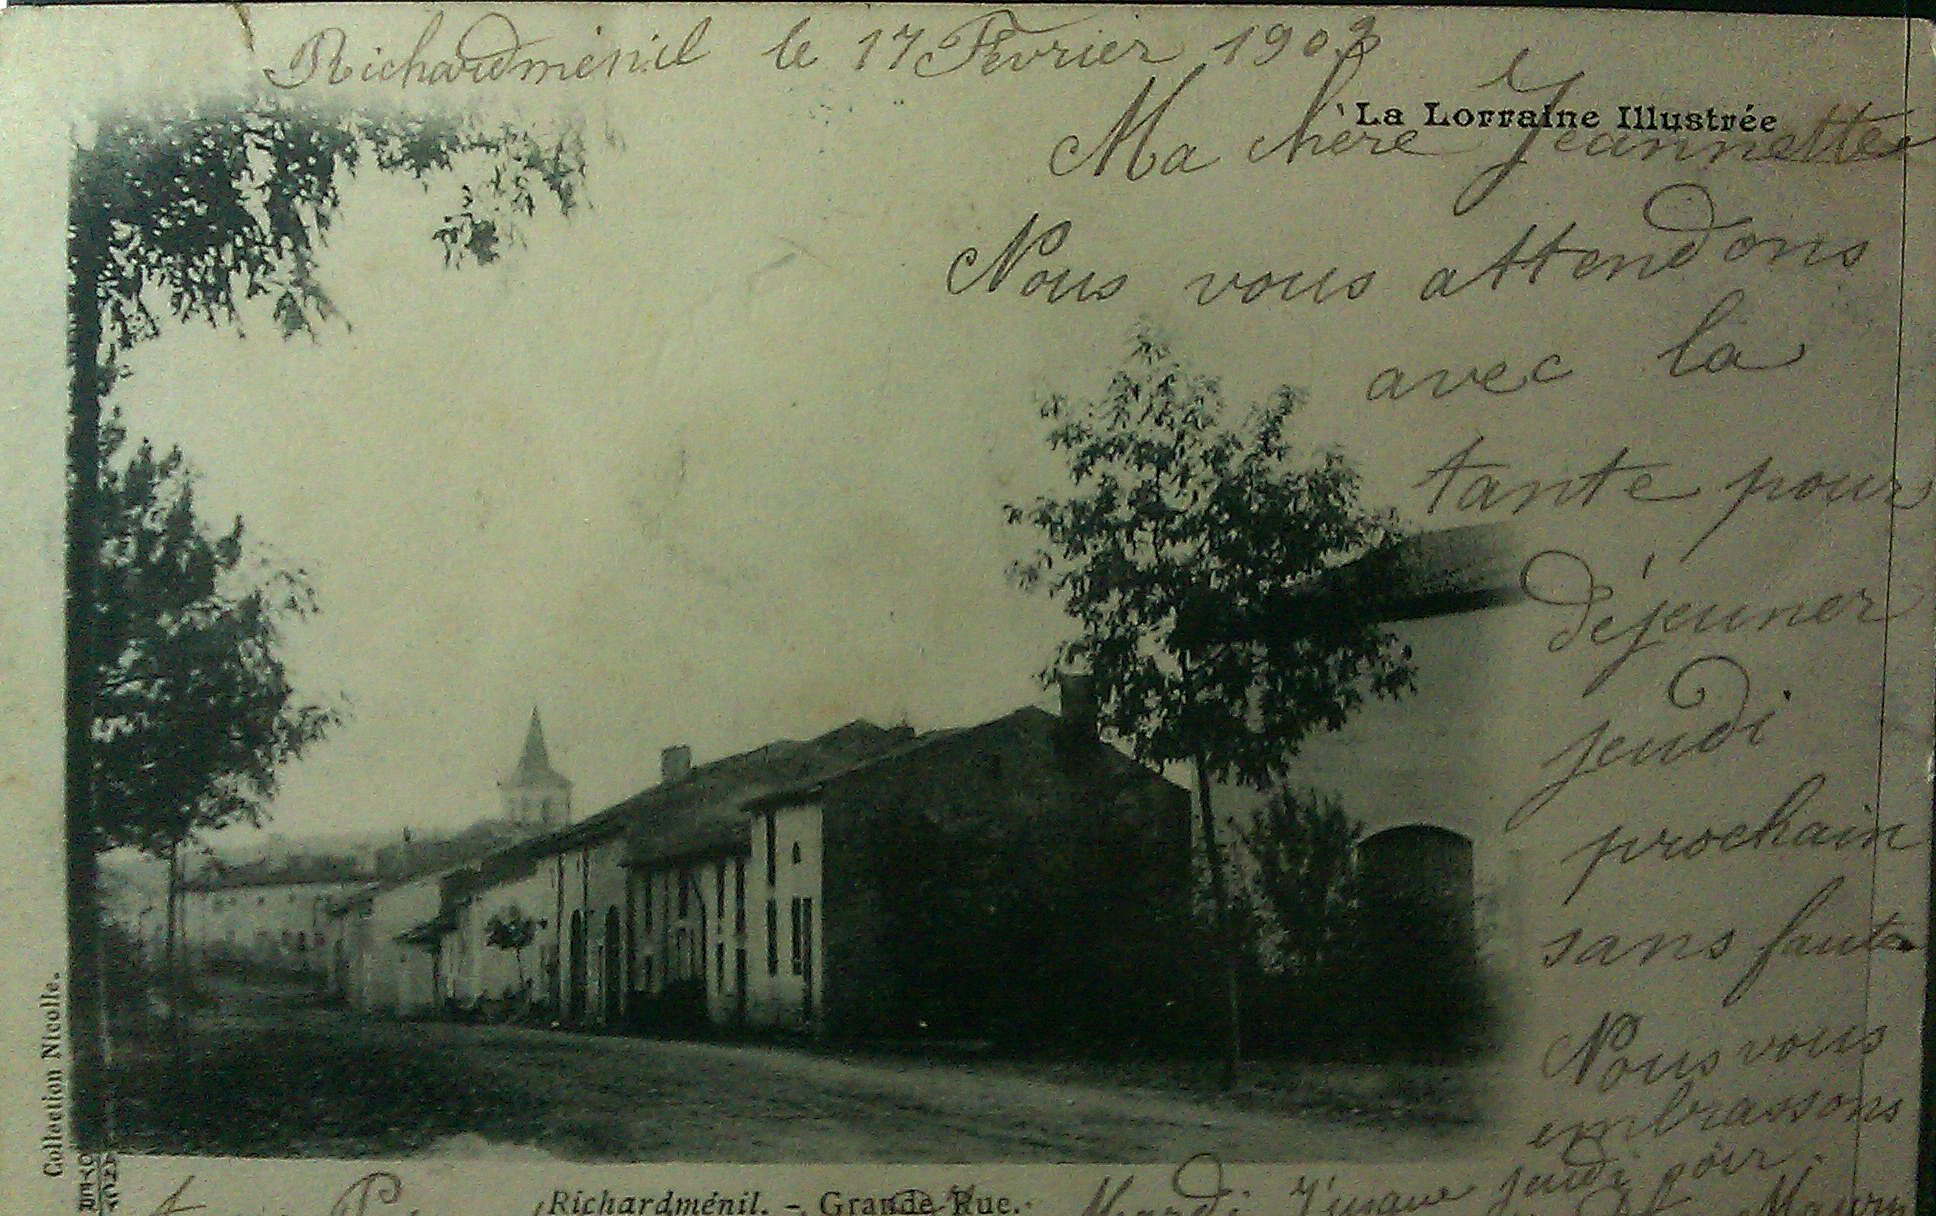 Richardménil le 17 Février 1903
La Lorraine Illustrée
Ma chère Jeannette
Nous vous attendons
avec la
tante pour
déjeuner
jeudi
prochain
sans faute
Nous vous
embrassons
jeudi soir.
Collection Nicolle.
Richardménil. – Grande Rue.
Mardi